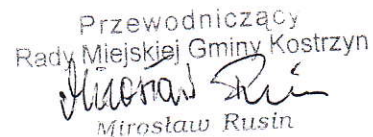 Przewodniczący
Rady Miejskiej Gminy Kostrzyn
Mirosław Rusin
Mirosław Rusin